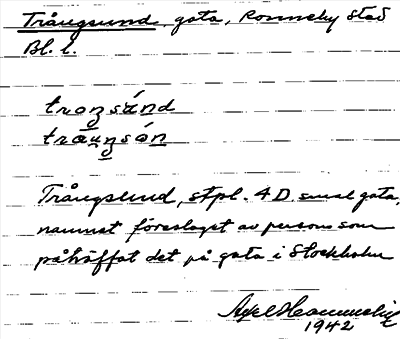 Trångsund, gata, Ronneby stad
Bl. l.
troŋsúnd
trauŋsón
Trångsund, stpl. 4 D. smal gata,
namnet föreslaget av person som
påträffat det på gata i Stockholm
1942